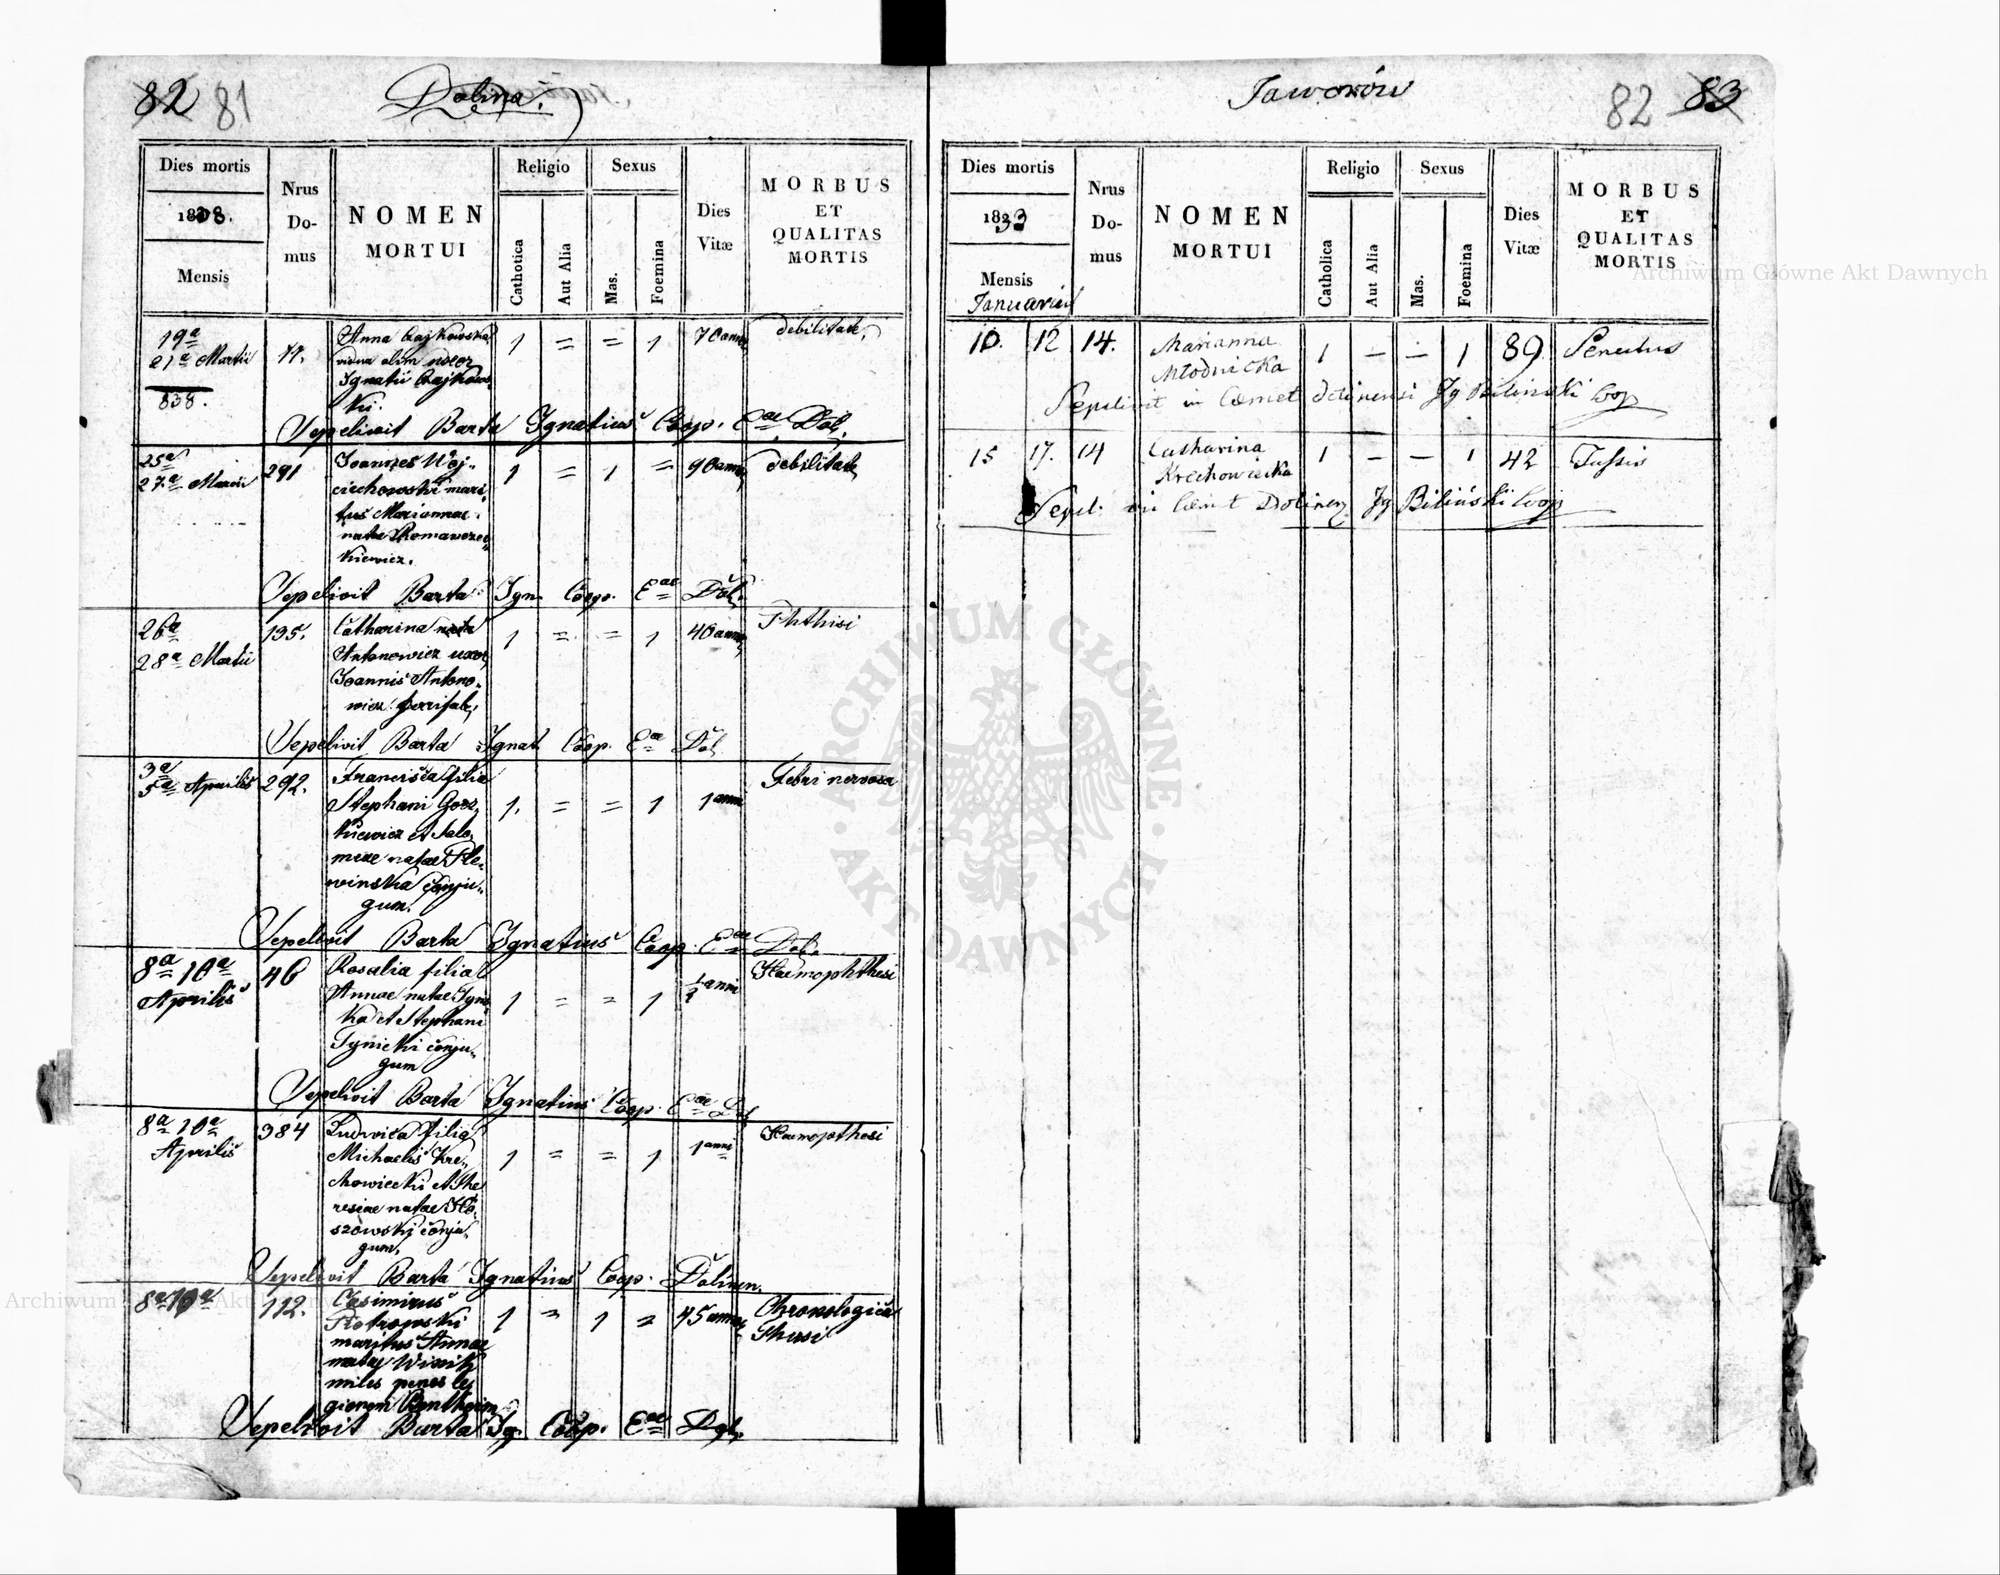 82 81
Dolina.
Dies mortis
1838.
Mensis
Nrus Do- mus
NOMEN
MORTUI
Religio
Catholica
Aut Alia
Sexus
Mas.
Foemina
Dies Vitæ
MORBUS
ET
QUALITAS
MORTIS
19a
21a Martii
838.
Anna Czajkowska
vidua olim uxor
Ignatii Czajkows
ki.
1 = = 1 70 anno debilitate
Sepelivit Barta Ignatius Coop. Eae Dol.
25a
27a Martii
291
Joannes Woj-
ciechowski mari-
tus Mariannae
natae Romanczu-
kiewicz.
1 = 1 = 90 anno debilitate
Sepelivit Barta Ign. Coop. Eae Dol.
26a
28a Martii
195.
Catharina nata
Antonowicz uxor
Joannis Antono-
wicz
1 = = 1 40 anno Phthisi
Sepelivit Barta Ignat. Coop. Eae Dol.
3a
5a Aprilis 292.
Francisca filia
Stephani Gorz
kiewicz et Salo-
meae natae
winska conju-
gum.
1. = = 1 1 anni Febri nervosa
Sepelivit Barta Ignatius Coop. Eae Dol.
8a 10a
Aprilis
46
Rosalia filia
Annae natae Tync
ka et Stephani
Tynicki conju-
gum
1 = = 1 ½ anni Haemophthesi
Sepelivit Barta Ignatius Coop. Eae Dol
8a 10a
Aprilis
384
Ludwica filia
Michaelis Kre-
chowiecki et The
resiae natae Ho-
szowski conju-
gum.
1 = = 1 1 anni Haemopthesi
Sepelivit Barta Ignatius Coop. Dolinen.
8a 10a
112.
Casimirus
Piotrowski
maritus Annae
natae
miles penes le
gionem Bentheim
1 = 1 = 45 anno Chronologica
Sepelivit Barta Ig. Coop. Eae Dol.
Jaworów
82 83
Dies mortis
1833
Mensis
Januarius
Nrus Do- mus
NOMEN
MORTUI
Religio
Catholica
Aut Alia
Sexus
Mas.
Foemina
Dies Vitæ
MORBUS
ET
QUALITAS
MORTIS
10. 12 14. Marianna
Młodnicka
1 – – 1 89. Senectus
Sepelivit in Cæmet Dolinensi Ig Biliński Coop
15 17. 14 Catharina
Krechowiecka
1 – – 1 42 Tussis
Sepel. in Cæmt Dolinen Ig Biliński Coop
Archiwum Główne Akt Dawnych
ARCHIWUM GŁÓWNE · AKT DAWNYCH ·